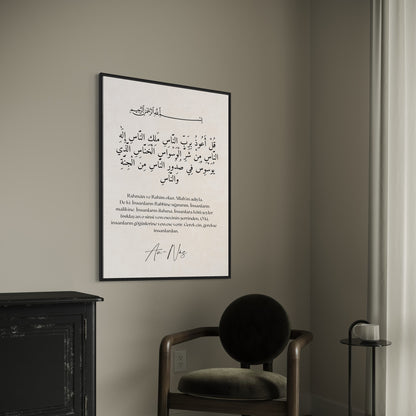 بسم الله الرحمن الرحيم
قُلْ أَعُوذُ بِرَبِّ النَّاسِ مَلِكِ النَّاسِ إِلَٰهِ
النَّاسِ مِنْ شَرِّ الْوَسْوَاسِ الْخَنَّاسِ الَّذِي
يُوَسْوِسُ فِي صُدُورِ النَّاسِ مِنَ الْجِنَّةِ
وَالنَّاسِ
Rahman ve Rahim olan Allah'ın adıyla.
De ki: İnsanların Rabbine sığınırım. İnsanların
malikine. İnsanların ilahına. İnsanlara kötü şeyler
fısıldayan o sinsi vesvesecinin şerrinden. O ki,
insanların göğüslerine vesvese verir. Gerek cin, gerekse
insanlardan.
An-Nas